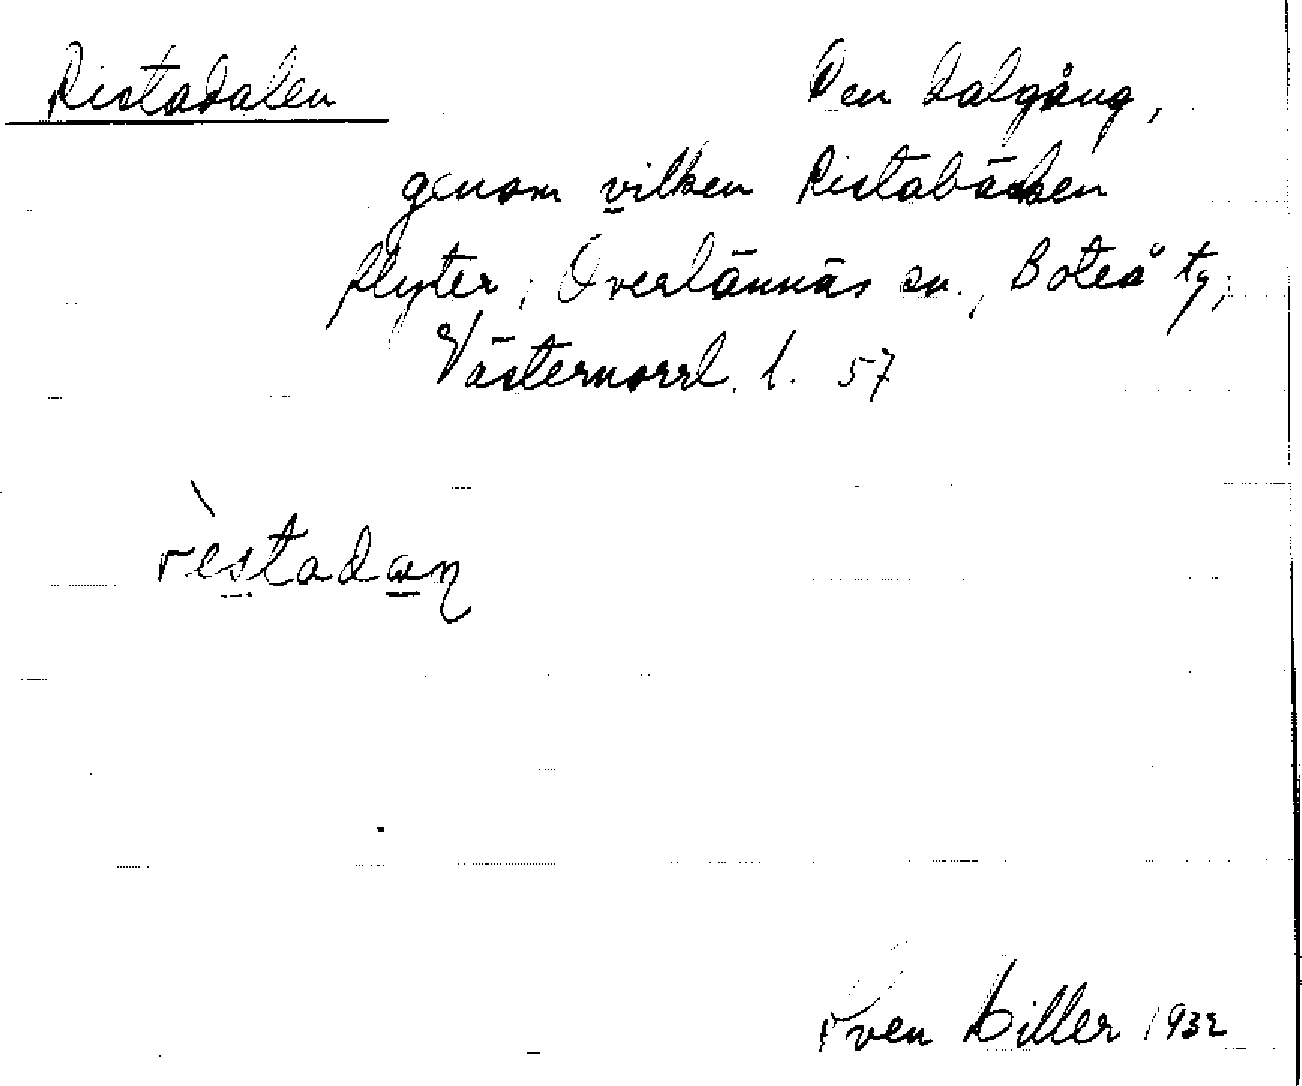 Ristadalen Den dalgång,
genom vilken Ristabäcken
flyter, Överlännäs sn., Boteå tg,
Västernorrl. l. 57
rèstadan
Sven Hiller 1932